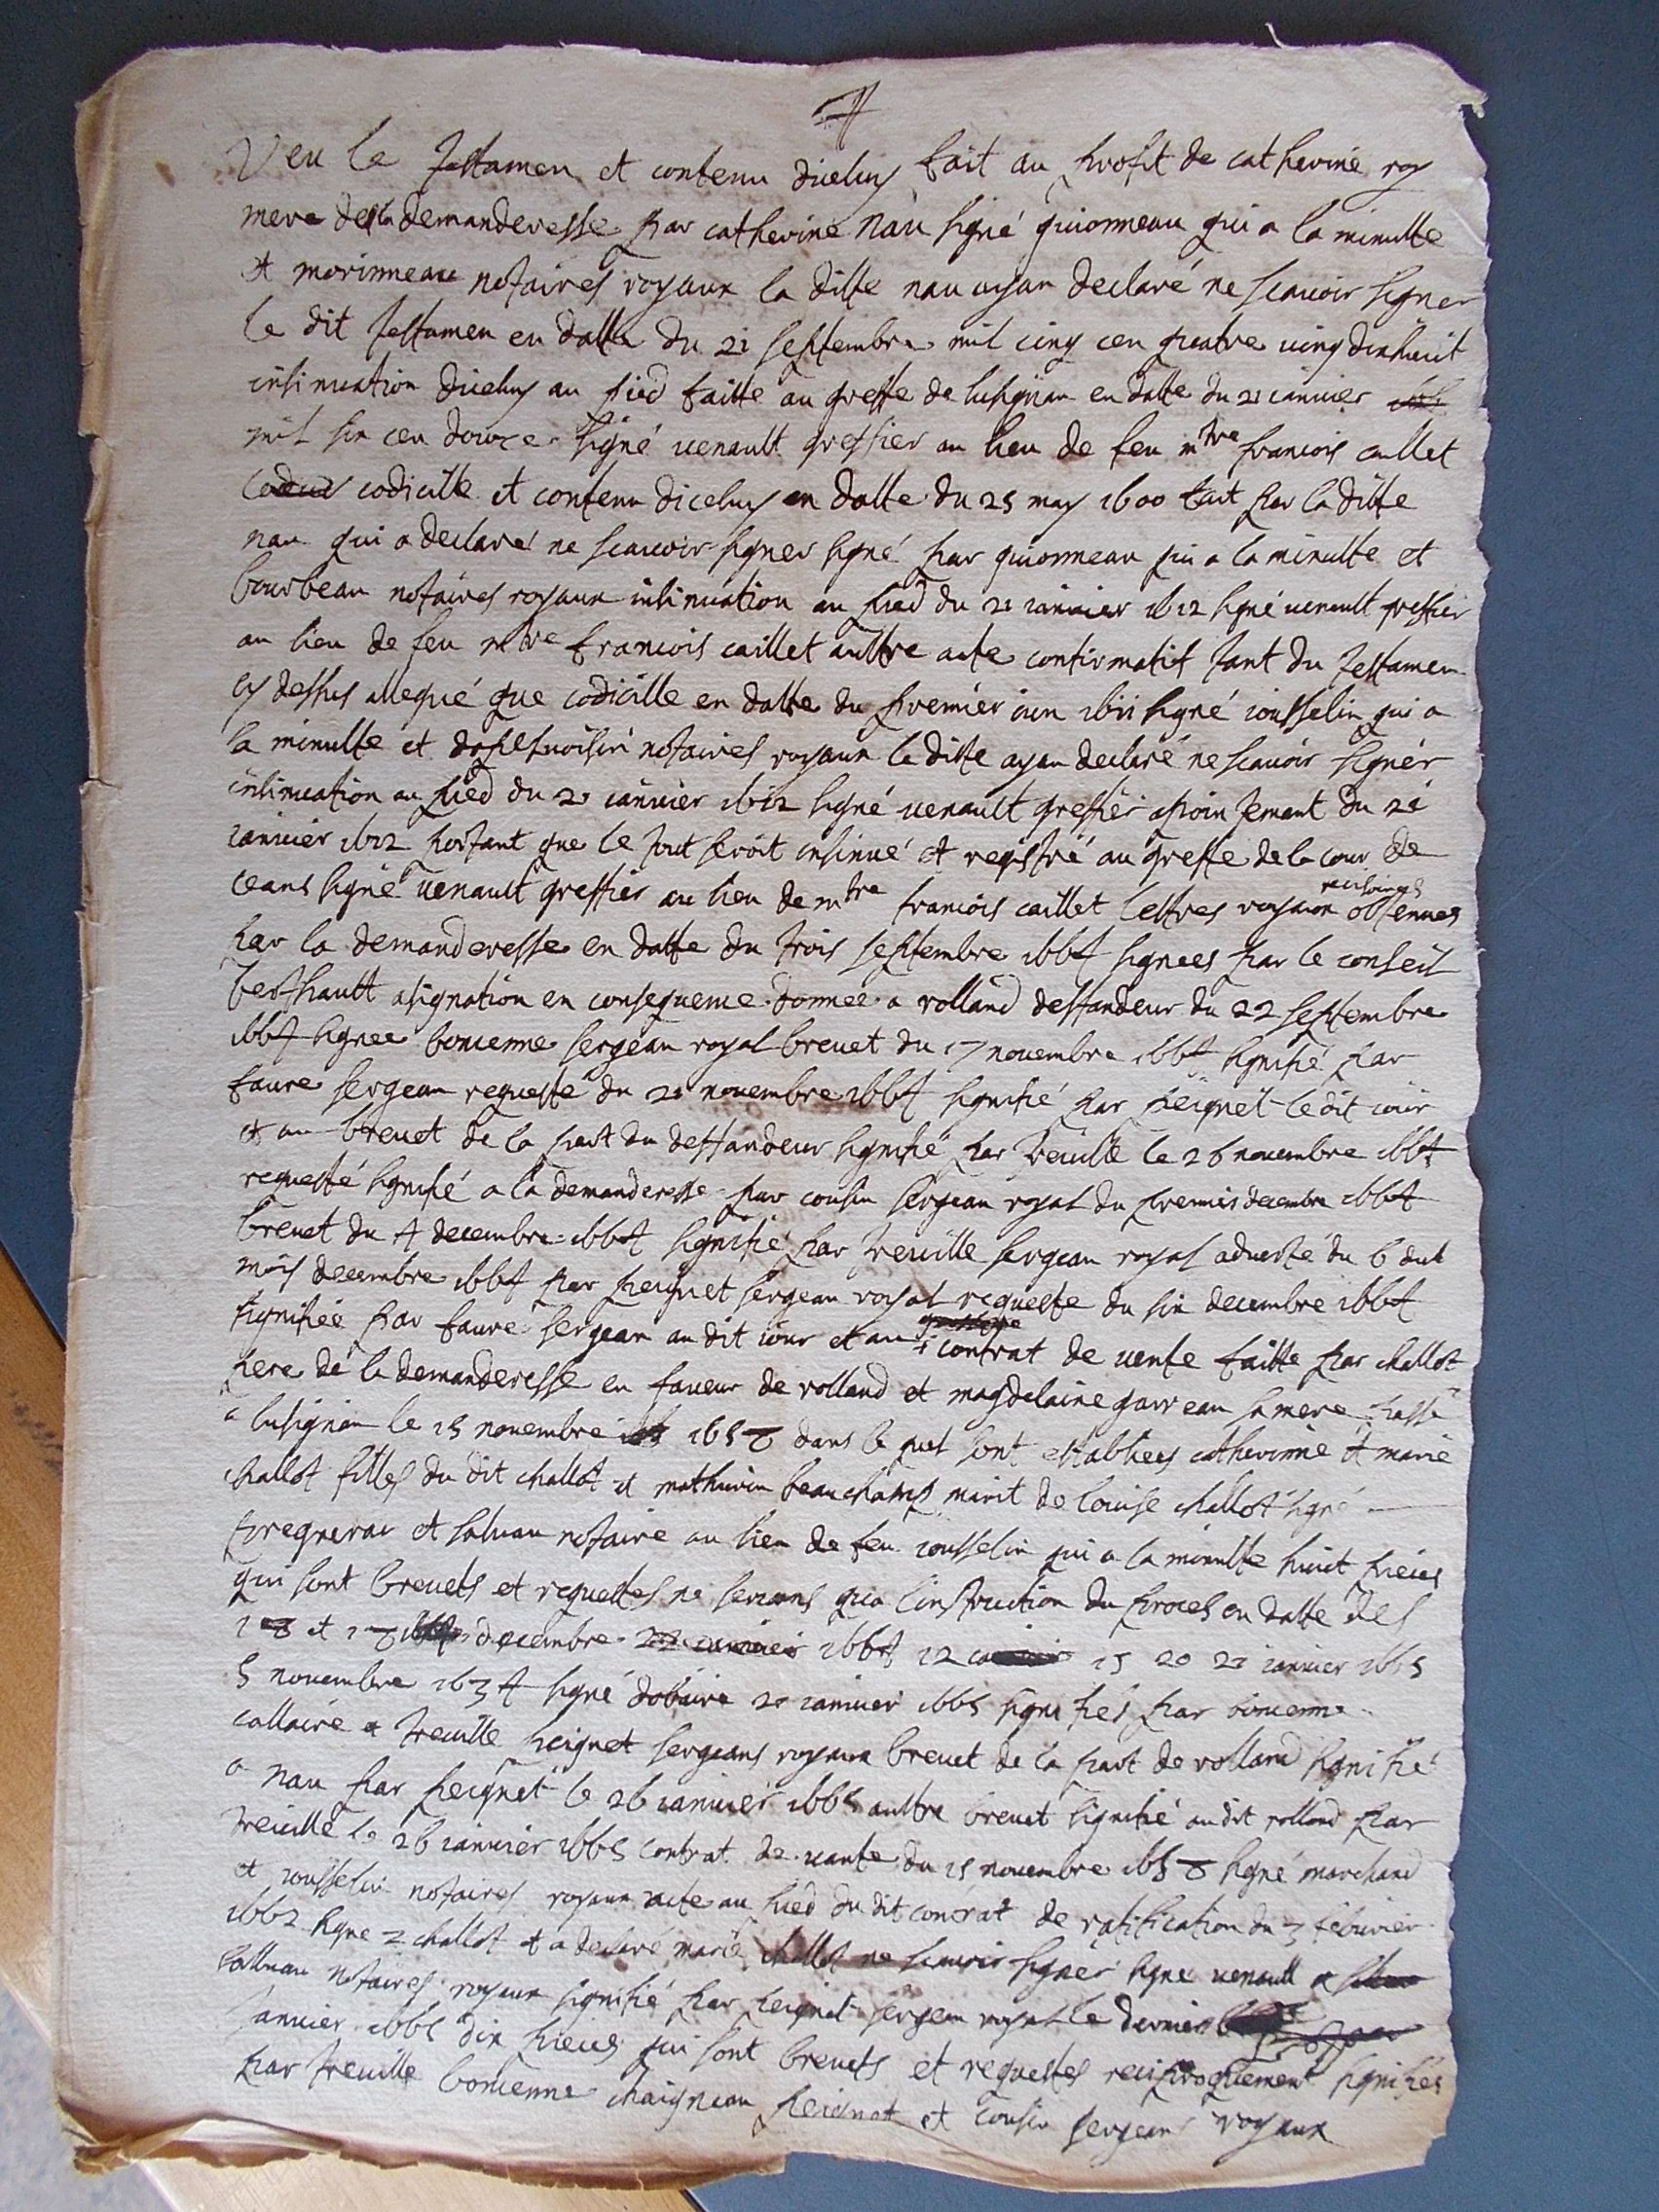 Veu le testamen et contenu diceluy fait au profit de catherine roy
mere de la demanderesse par catherine nau signé guionneau qui a la minutte
et morinneau notaires royaux la ditte nau ayan declaré ne scauoir signer
le dit testamen en datte du 21 septembre mil cinq cen quatre uing dixhuict
insinuation diceluy au pied faitte au greffe de lusignan en datte du 21 ianuier
mil six cen douze signé uenault greffier au lieu de feu mtre francois caillet
codicille et contenu diceluy en datte du 25 may 1600 fait par la ditte
nau qui a declaré ne scauoir signer signé par guionneau qui a la minutte et
bourbeau notaires royaux insinuation au pied du 21 ianuier 1612 signé uenault greffier
au lieu de feu mtre francois caillet aultre acte confirmatif tant du testamen
cy dessus allegué que codicille en datte du premier iuin 1611 signé iousselin qui a
la minutte et notaires royaux la ditte ayan declaré ne scauoir signer
insinuation au pied du 21 ianuier 1612 signé uenault greffier apointement du 21
ianuier 1612 portant que le tout seroit insinué et registré au greffe de la cour de
ceans signé uenault greffier au lieu de mtre francois caillet lettres royaux obtenues
par la demanderesse en datte du trois septembre 1664 signees par le conseil
berthault asignation en consequence donnee a rolland deffandeur du 22 septembre
1664 signee boncenne sergean royal breuet du 17 nouembre 1664 signifié par
faure sergean requeste du 21 nouembre 1664 signifié par peignet le dit iour
et an breuet de la part du deffandeur signifié par treuille le 26 nouembre 1664
requeste signifié a la demanderesse par cousin sergean royal du premier decembre 1664
breuet du 4 decembre 1664 signifié par treuille sergean royal aduerté du 6 dud
mois decembre 1664 par peignet sergean royal requeste du six decembre 1664
signifiée par faure sergean au dit iour et an contrat de uente faitte par challot
pere de la demanderesse en faueur de rolland et magdelaine garreau sa mere passé
a lusignan le 15 nouembre 1658 dans le quel sont establies catherinne et marie
challot filles du dit challot et mathurin beauchamp mari de louise challot signé
et saluau notaire au lieu de feu iousselin qui a la minutte huict pieces
qui sont breuets et requestes ne seruans qua linstruction du proces en datte des
18 et decembre 1664 12 15 20 21 ianuier 1665
5 nouembre 1634 signé 20 ianuier 1665 signifiés par boncenne
callaire et treuille peignet sergeans royaux breuet de la part de rolland signifié
a nau par peignet le 26 ianuier 1665 aultre breuet signifié au dit rolland par
treuille le 26 ianuier 1665 contrat de uante du 15 nouembre 1658 signé marchand
et iousselin notaires royaux acte au pied du dit contrat de ratification du 7 feburier
1662 signé challot et a declaré marie challot ne scauoir signer signé uenault et
saluau notaires royaux signifié par peignet sergean royal le dernier
ianuier 1665 dix pieces qui sont breuets et requestes reciproquement signifiés
par treuille boncenne chaigneau peignet et cousin sergeans royaux